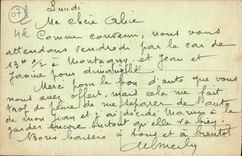 07
Lundi
Ma chère Alice
Comme convenu, nous vous
attendons vendredi par le car de
13h 1/2 à Montagny. et Jean et
Jeanine pour dimanche
Merci pour le bon d'auto que vous
nous avez offert, mais cela me fait
trop de peine de me séparer de l'auto
de mon Jean et j'ai décidé de la
garder encore surtout qu'elle va bien.
Bons baisers à tous et à bientôt